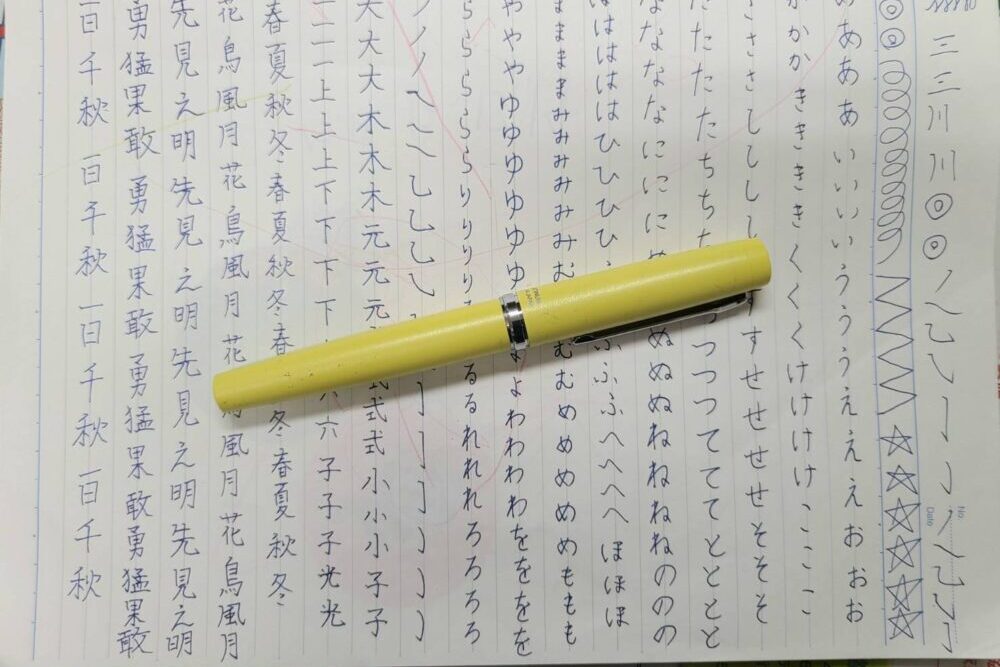 三三川川
あああいいいいううううえええおおお
かかききききくくくくけけけけここここ
さささししししすせせせせそそそ
たたたたちちたつつつててててとととと
ななななにににぬぬぬねねねねののの
ははははひひひひふふふへへへへほほほ
ままままみみみみみむむむめめめめももも
ややゆゆゆゆゆよわわわわをををを
らららららりりりりるるれれれろろろろ
大大大木木木元元元式式小小小子子
二二上上上下下下下六子子子光光
春夏秋冬春夏秋冬春冬春夏秋冬
花鳥風月花鳥風月花風月花鳥風月
先見之明先見之明先見之明先見之明
勇猛果敢勇猛果敢勇猛果敢勇猛果敢
日千秋一日千秋一日千秋一日千秋
No.
Date